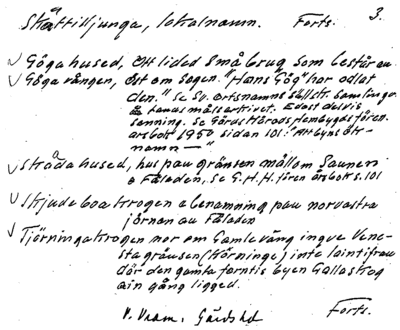 Skättilljunga, lokalnamn. Forts. 3.
Göga hused, ett lided småbrug som består än.
Göga vången, öst om sogen. "Hans Gög" har odlat
den." Se Sv. ortsnamns sällsk. samlingar
Landsmålsarkivet. Endast delvis
sanning. Se Gärds Härads Hembygdsfören.
årsbok 1950 sidan 101: "Åhbyns ök-
namn —"
Skräda hused, hus pau gränsen mällom Saunen
o Fäladen, Se G. H. H. fören årsbok s. 101
Skjude boakrogen e benamning pau norvästra
jörnan au Fäladen
Tjörningakrogen nor om Gamlevång ingve Vene-
stagränsen (Körninge) inte laintifrau
där den gamla forntis byen Gallaskog
ain gång ligged.
V. Vram. Gärds hd Forts.